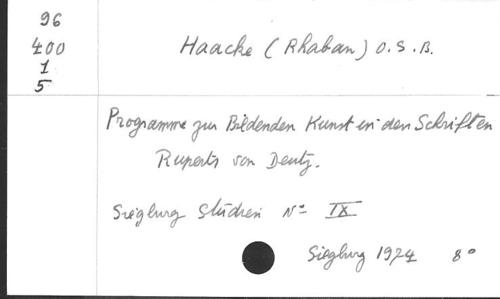 96
400
1
5
Haacke (Rhaban) O.S.B.
Programme zur Bildenden Kunst in den Schriften
Ruperts von Deutz.
Siegburg Studien Nº IX
Siegburg 1974 8º